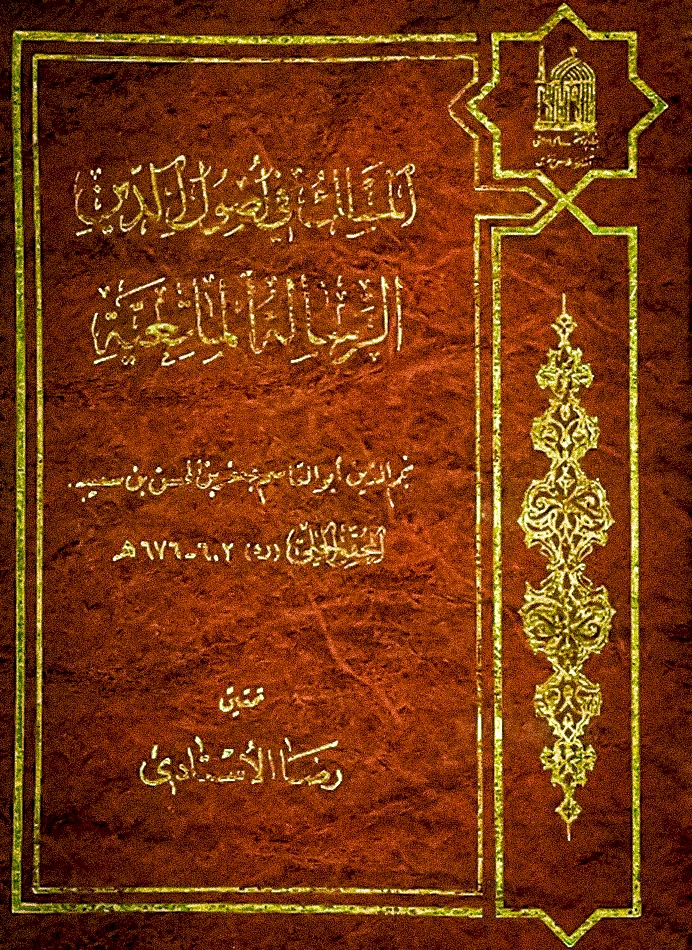 المسلك في أصول الدين
الرسالة الماتعية
نجم الدين أبو القاسم جعفر بن الحسن بن سعيد
المحقق الحلي (ره) ٦٠٢-٦٧٦ هـ
تحقيق
رضا الأستادي